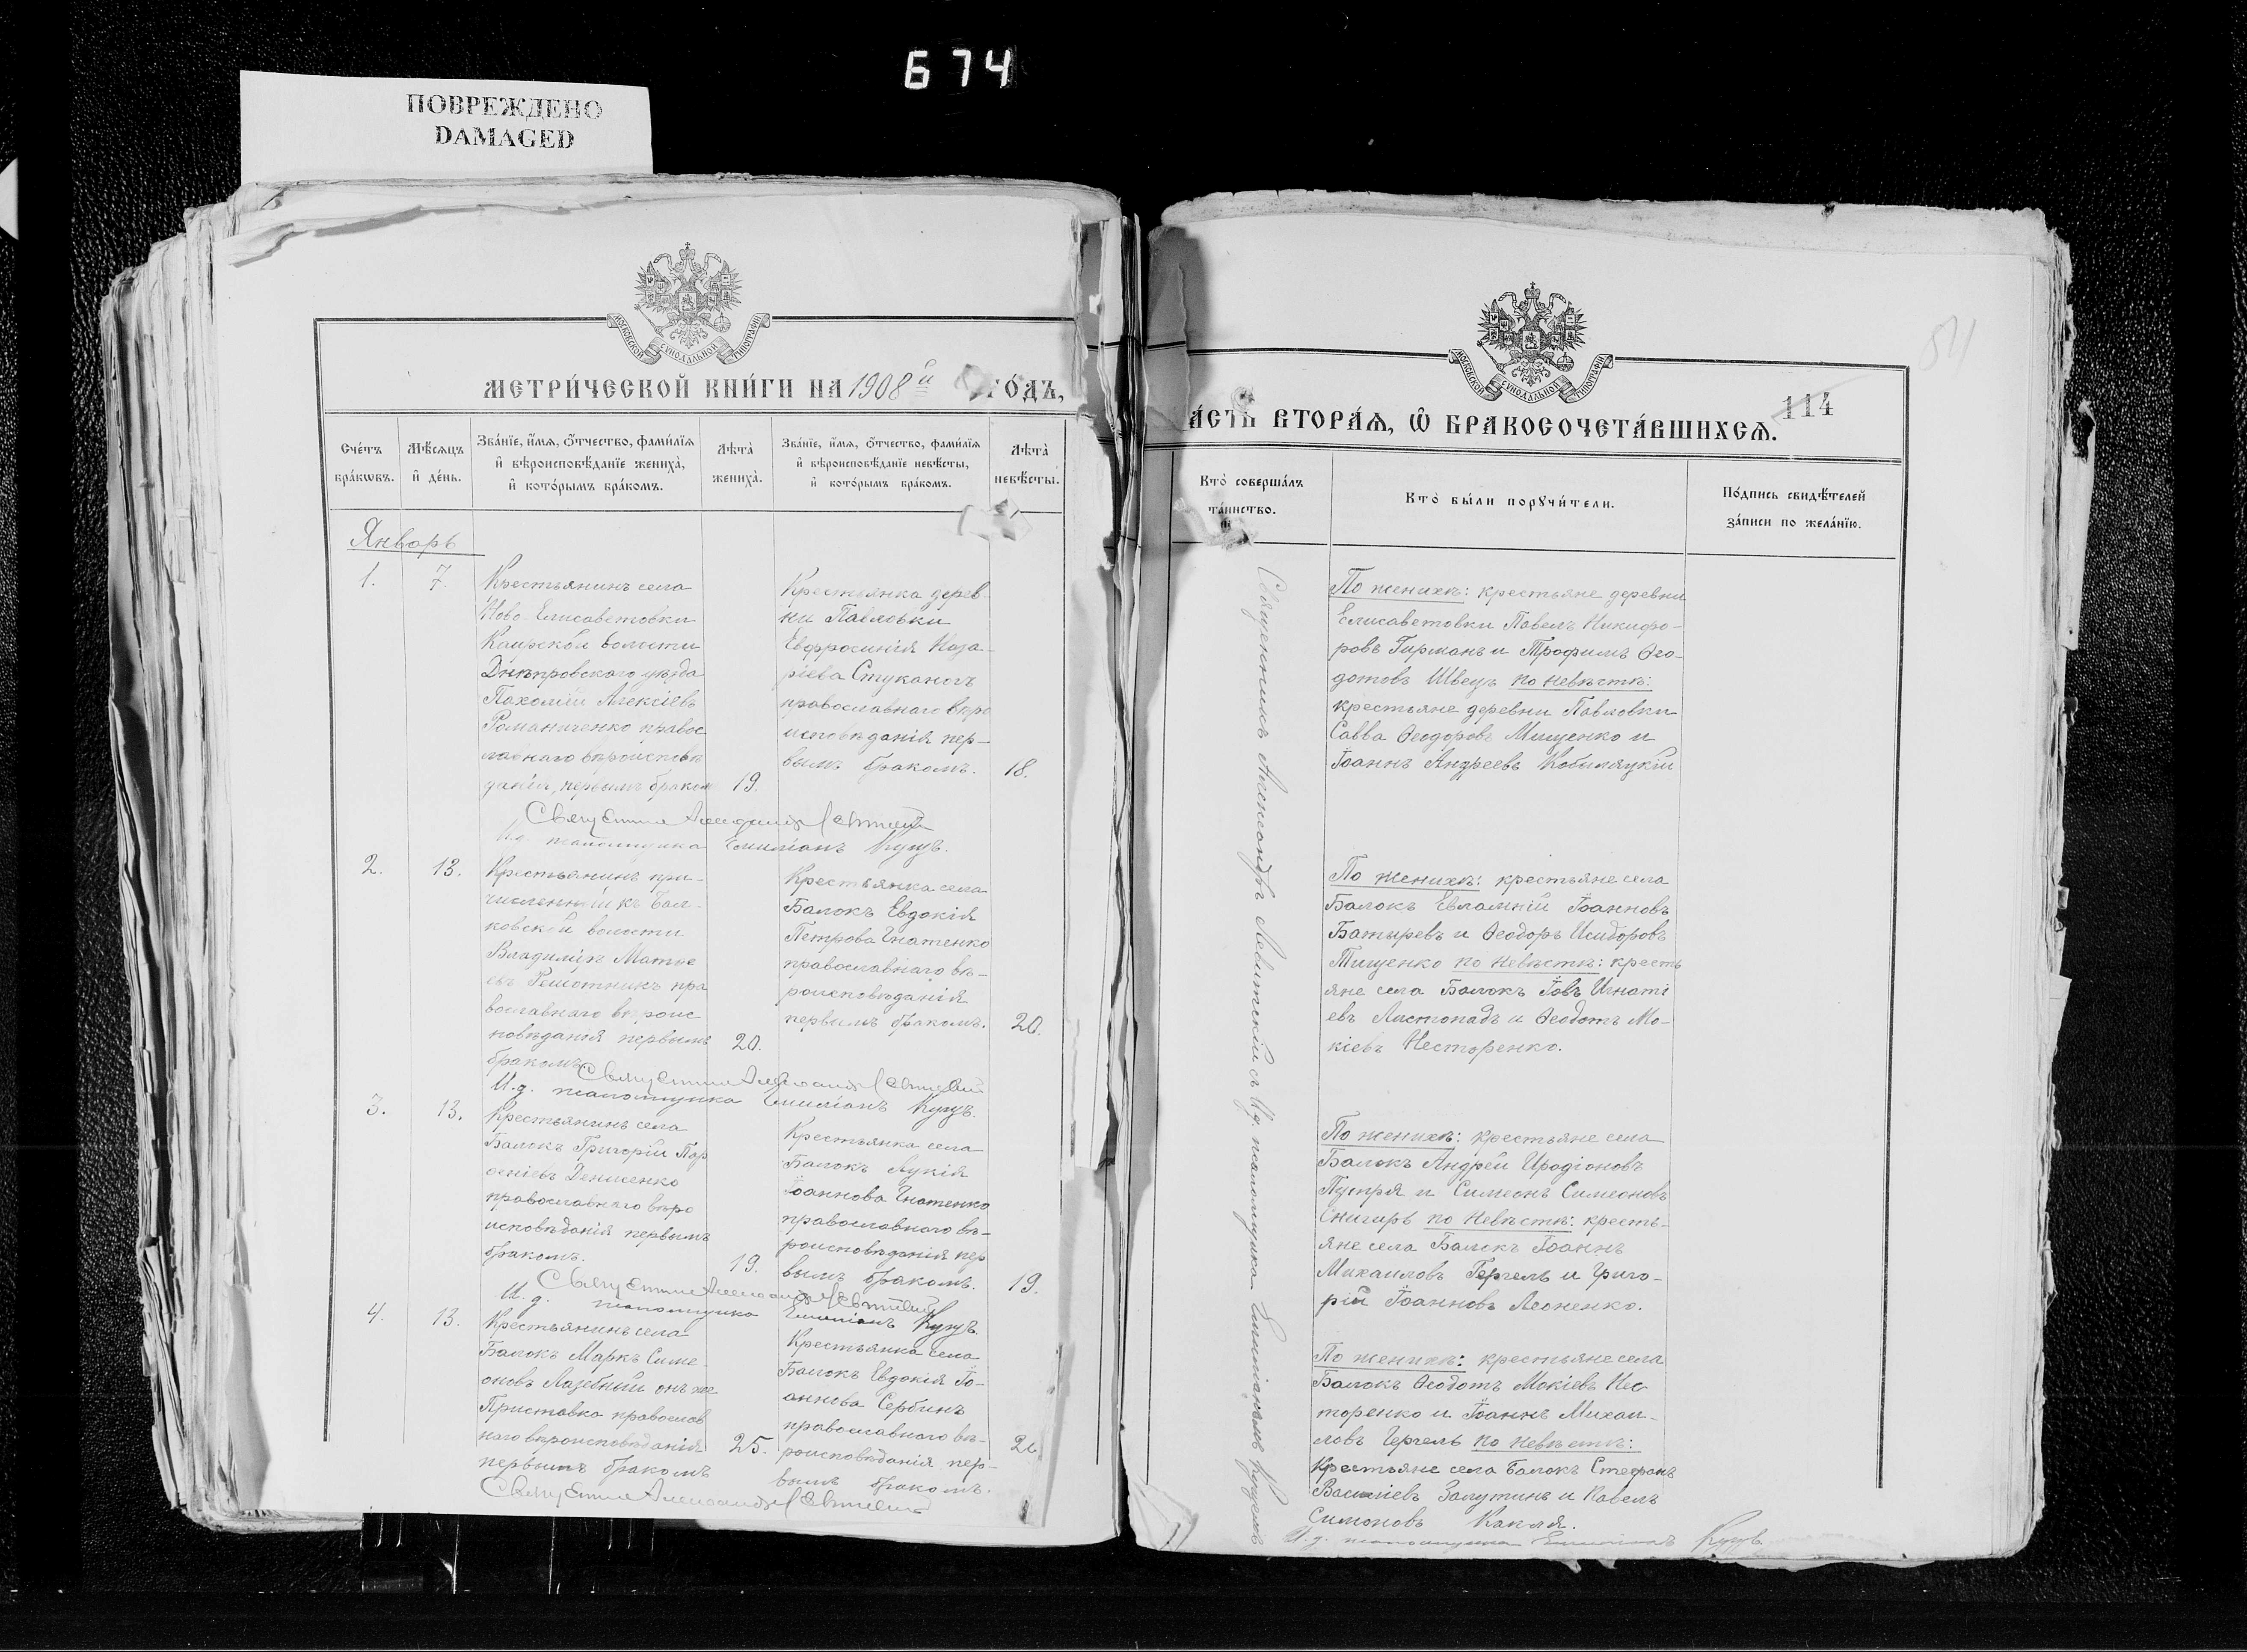 674
ПОВРЕЖДЕНО
DAMAGED
МОСКОВСКОЙ СУНОДАЛЬНОЙ ТИПОГРАФІИ
МЕТРИ́ЧЕСКОЙ КНИ́ГИ НА 1908й ГО́ДЪ,
Сче́тъ бра́кѡвъ.
Мѣ́сяцъ и҆ де́нь.
Зва́нїе, и҆́мѧ, ѻ҆́тчество, фами́лїѧ и҆ вѣроисповѣ́данїе жениха̀, и҆ кото́рымъ бра́комъ.
Лѣ́та жениха̀.
Зва́нїе, и҆́мѧ, ѻ҆́тчество, фами́лїѧ и҆ вѣроисповѣ́данїе невѣ́сты, и҆ кото́рымъ бра́комъ.
Лѣ́та невѣ́сты.
Январь
1.
7.
Крестьянинъ села
Ново-Елисаветовки
Каирской волости
Днѣпровскаго уѣзда
Пахомій Алексіевъ
Романиченко правос
лавнаго вѣроисповѣ
данія, первымъ бракомъ
19.
Крестьянка дерев-
ни Павловки
Евфросинія Наза-
ріева Стуканогъ
православнаго вѣро
исповѣданія пер-
вымъ бракомъ.
18.
Священникъ Александръ Левитскій
И.д. псаломщика Емиліанъ Куцъ.
2.
13.
Крестьянинъ при-
численный къ Бал-
ковской волости
Владиміръ Матѳе
евъ Решотникъ пра
вославнаго вѣроис
повѣданія первымъ
бракомъ
20.
Крестьянка села
Балокъ Евдокія
Петрова Гнатенко
православнаго вѣ-
роисповѣданія
первымъ бракомъ.
20.
Священникъ Александръ Левитскій
И.д. псаломщика Емиліанъ Куцъ.
3.
13.
Крестьянинъ села
Балокъ Григорій Пар
ѳеніевъ Денисенко
православнаго вѣро
исповѣданія первымъ
бракомъ.
19.
Крестьянка села
Балокъ Лукія
Іоаннова Гнатенко
православнаго вѣ-
роисповѣданія пер
вымъ бракомъ.
19.
Священникъ Александръ Левитскій
И.д. псаломщика Емиліанъ Куцъ.
4.
13.
Крестьянинъ села
Балокъ Маркъ Симе-
оновъ Лазебный онъ же
Приставка православ
наго вѣроисповѣданія
первымъ бракомъ
25.
Крестьянка села
Балокъ Евдокія Іо-
аннова Сербинъ
православнаго вѣ-
роисповѣданія пер-
вымъ бракомъ.
Священникъ Александръ Левитскій
МОСКОВСКОЙ СУНОДАЛЬНОЙ ТИПОГРАФІИ
511
114
А́СТЬ ВТОРА́Ѧ, Ѽ БРАКОСОЧЕТА́ВШИХСѦ.
Кто̀ соверша́лъ та́инство.
Кто̀ бы́ли порꙋчи́тели.
По́дпись свидѣ́телей за́писи по жела́нїю.
Священникъ Александръ Левитскій съ И.д. псаломщика Емиліаномъ Куцемъ
По женихѣ: крестьяне деревни
Елисаветовки Павелъ Никифо-
ровъ Гирманъ и Трофимъ Ѳео-
дотовъ Швецъ по невѣстѣ:
крестьяне деревни Павловки
Савва Ѳеодоровъ Мищенко и
Іоаннъ Андреевъ Кобыляцкій
По женихѣ: крестьяне села
Балокъ Евлампій Іоанновъ
Батыревъ и Ѳеодоръ Исидоровъ
Тищенко по невѣстѣ: кресть
яне села Балокъ Іовъ Игнаті
евъ Листопадъ и Ѳеодотъ Мо-
кіевъ Несторенко.
По женихѣ: крестьяне села
Балокъ Андрей Иродіоновъ
Пугиря и Симеонъ Симеоновъ
Снигирь по невѣстѣ: кресть-
яне села Балокъ Іоаннъ
Михаиловъ Гергель и Григо-
рій Іоанновъ Леоненко.
По женихѣ: крестьяне села
Балокъ Ѳеодотъ Мокіевъ Нес
торенко и Іоаннъ Михаи-
ловъ Гергель по невѣстѣ:
Крестьяне села Балокъ Стефанъ
Василіевъ Залутинъ и Павелъ
Симоновъ Какля.
И.д. псаломщика Емиліанъ Куцъ.